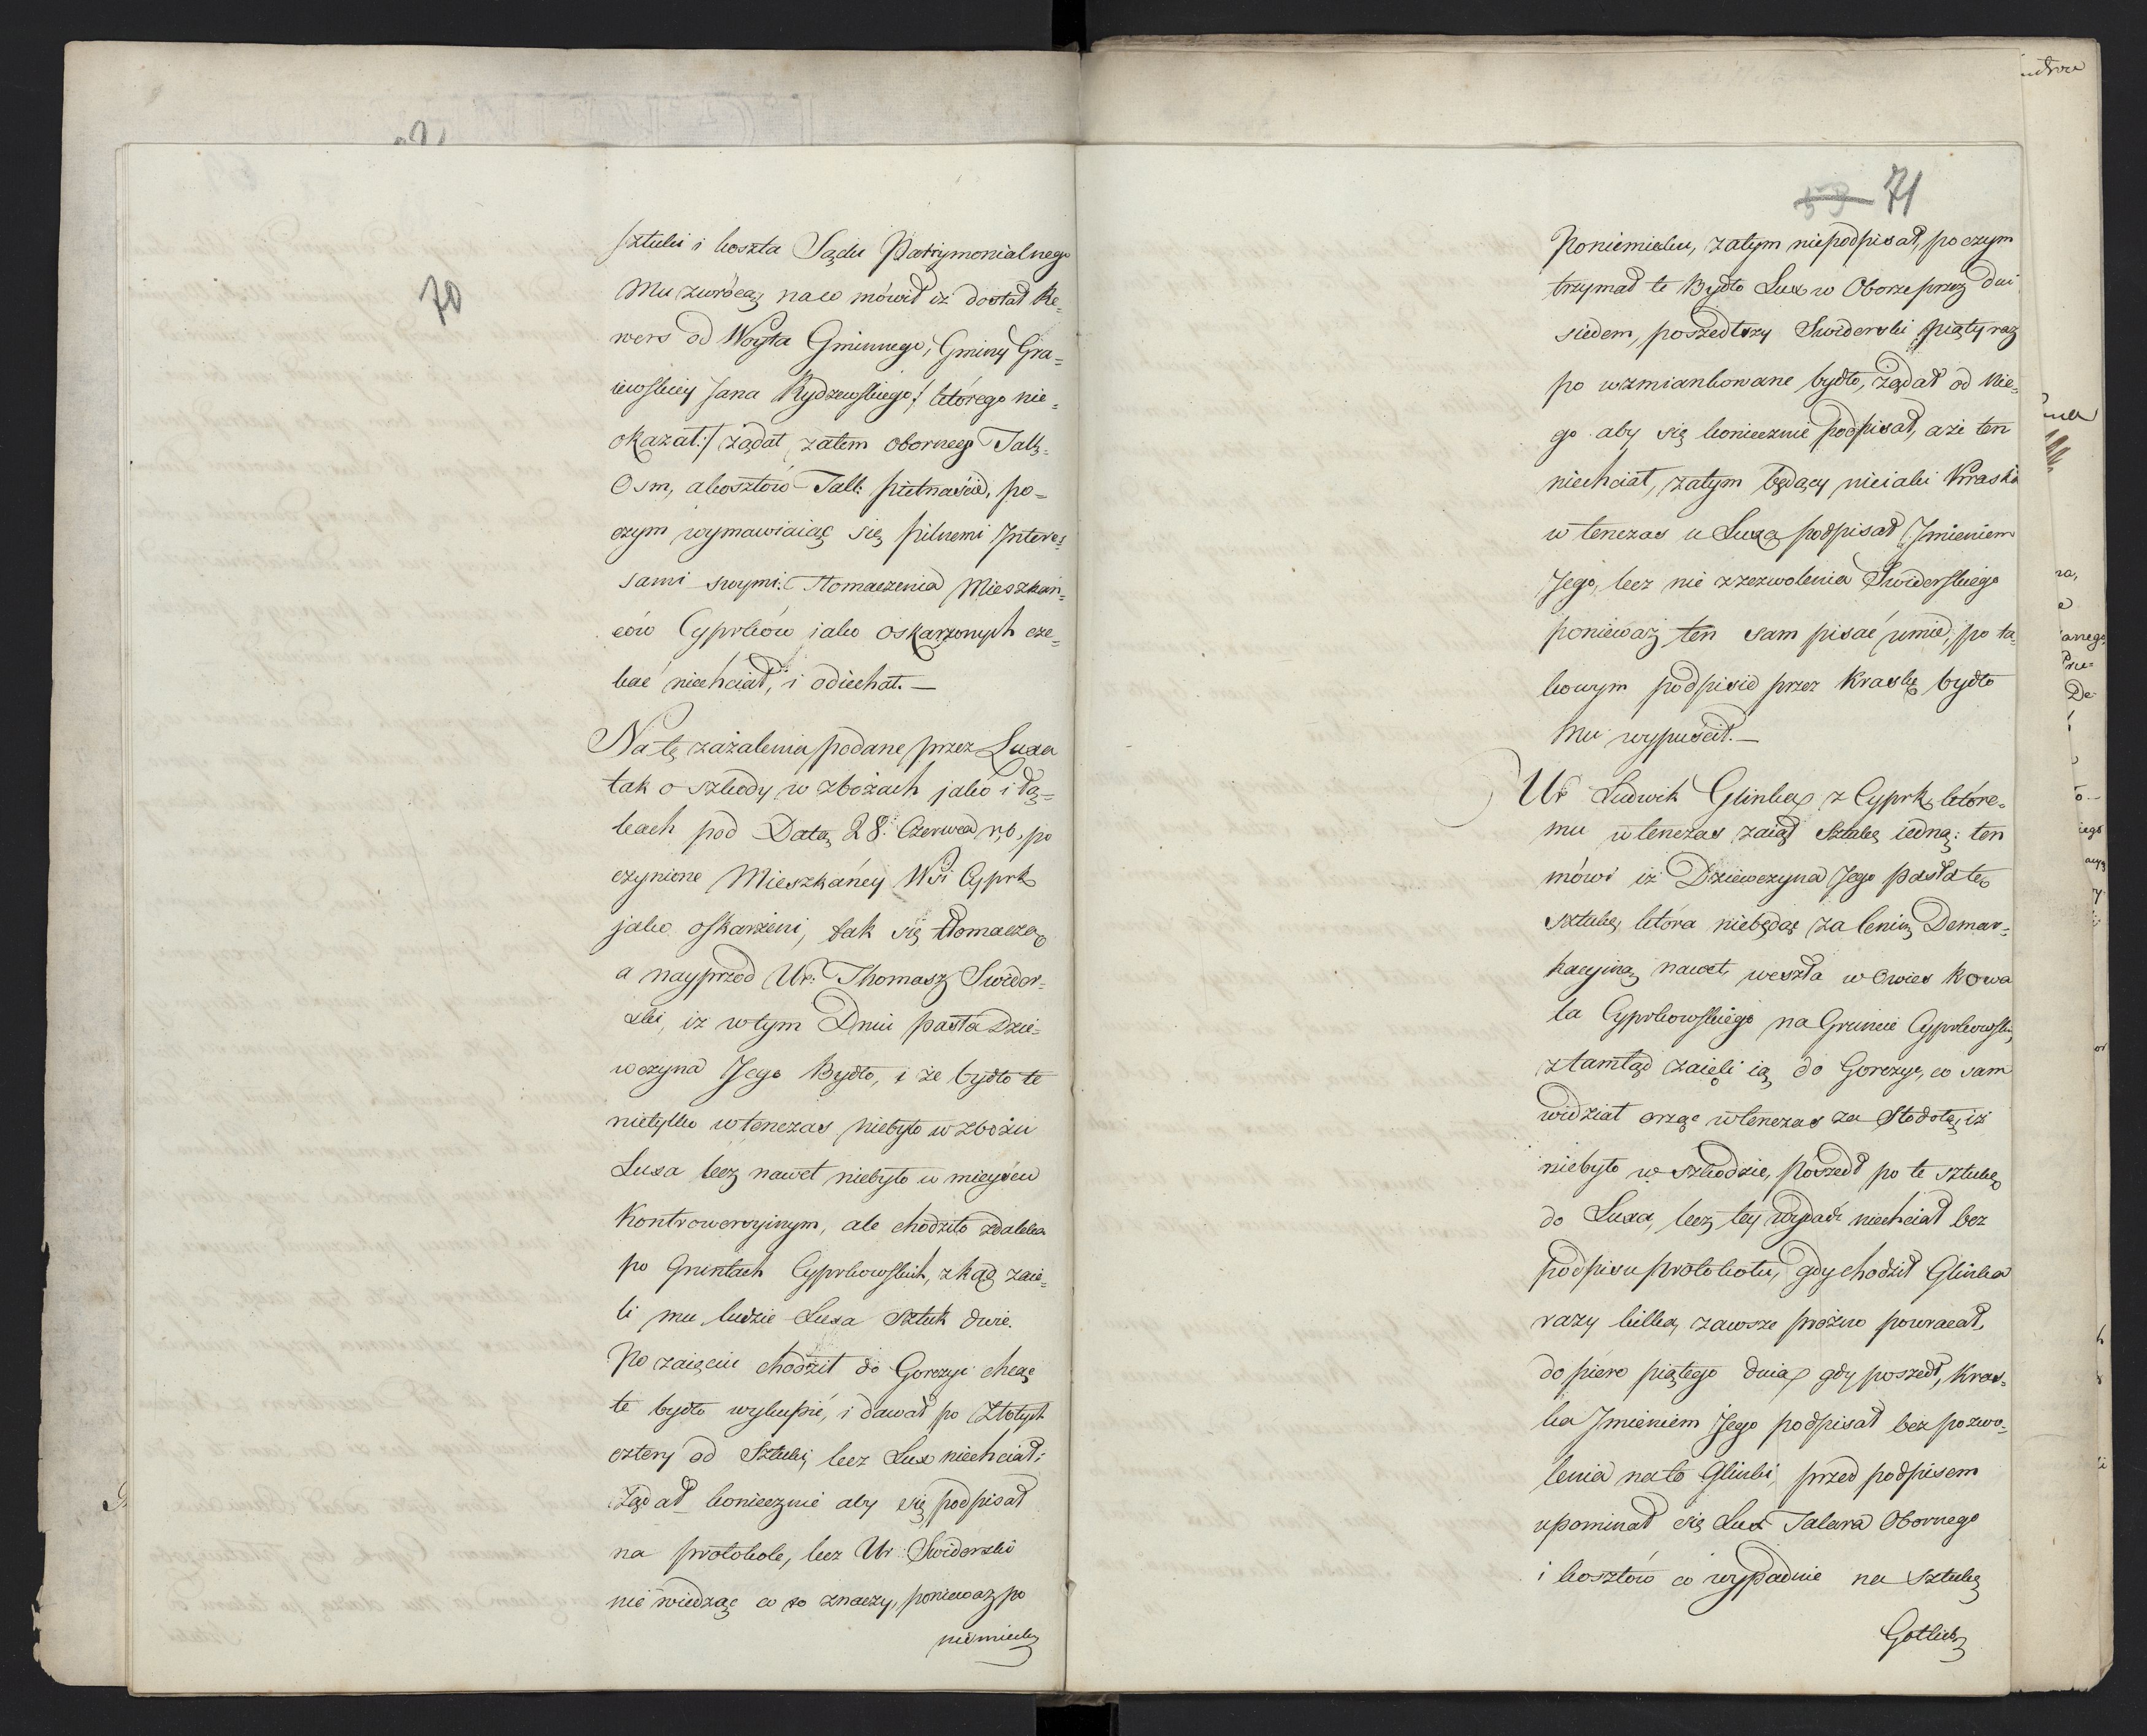 70
sztuki i koszta Sądu Patrymonialnego
Mu zwrócą, naco mówił iż dostał Re=
wers od Woyta Gminnego, Gminy Gra=
iewskiey Jana Rydzewskiego /: którego nie=
okazał :/ żądał zatem obornego Tall:
Osm, a kosztów Tall: piętnaście, po=
czym wymawiaiąc się pilnemi Interes=
sami swymi: Tłomaczenia Mieszkań=
ców Cyprków jako oskarżonych cze=
kać niechciał, i odiechał. —
Na tę zażalenia podane przez Luxa
tak o szkody w zbożach jako i łą=
kach pod Datą 28. Czerwca r, b, po
czynione Mieszkańcy Wsi Cyprk
jako oskarżeni, tak się tłomaczą
a nayprzód Ur: Thomasz Swider=
ski, iż w tym Dniu pasła Dzie=
wczyna Jego Bydło, i że bydło te
nietylko wtenczas niebyło w zbożu
Luxa lecz nawet niebyło w mieyscu
Kontrowersyinym, ale chodziło zdaleka
po Gruntach Cyprkowskich, zkąd zaie=
li mu ludzie Luxa Sztuk dwie.
Po zaięciu chodził do Gorczyc chcąc
te bydło wykupić, i dawał po Złotych
cztery od Sztuki, lecz Lux niechciał;
Żądał koniecznie aby się podpisał
na protokole, lecz Ur: Swiderski
nie wiedząc co to znaczy, ponieważ po
niemiecku
71
Poniemieku, zatym niepodpisał, po czym
trzymał te Bydło Lux w Oborze przez dni
siedem, poszedłszy Swiderski piąty raz
po wzmiankowane bydło, żądał od Nie=
go aby się koniecznie podpisał, a że ten
niechciał, zatym będący nieiaki Kraska
w tenczas u Luxa podpisał Jmieniem
Jego, lecz nie z zezwolenia Swiderskiego
ponieważ ten sam pisać umie, po ta=
kowym podpisie przez Kraskę bydło
Mu wypuścił. —
Ur Ludwik Glinka z Cyprk, które=
mu wtenczas zaiął Sztukę iedną: ten
mówi iż Dziewczyna Jego pasła tę
sztukę, która niebędąc za linią Demar=
kacyiną nawet, weszła w Owies Kowa
la Cyprkowskiego na Gruncie Cyprkowskim
ztamtąd zaięli ią do Gorczyc, co sam
widział orząc wtenczas za Stodołą, iż
niebyło w szkodzie, poszedł po te sztukę
do Luxa, lecz tey wydać niechciał bez
podpisu protokołu, gdy chodził Glinka
razy kilka, zawsze próżno powracał,
dopiero piątego dnia gdy poszedł, Kras=
ka Jmieniem Jego podpisał bez pozwo=
lenia na to Glinki, przed podpisem
upominał się Lux Talara Obornego
i kosztów co wypadnie na Sztukę
Gotlieb